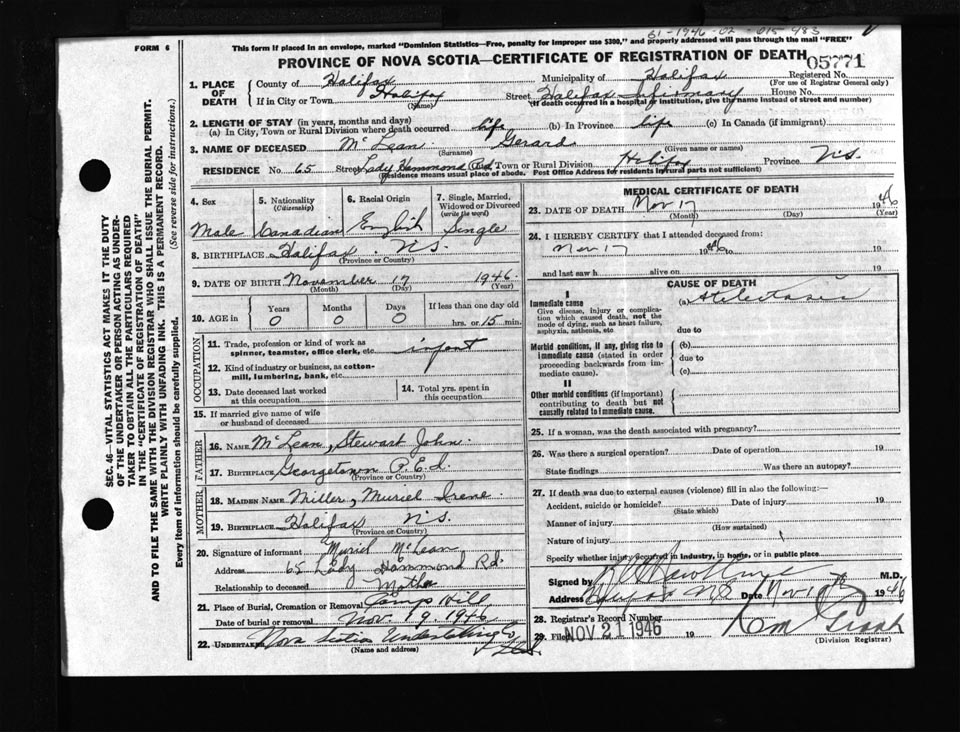 61-1946-02-015-483
FORM 6
This form if placed in an envelope, marked "Dominion Statistics—Free, penalty for improper use $300," and properly addressed will pass through the mail "FREE"
PROVINCE OF NOVA SCOTIA—CERTIFICATE OF REGISTRATION OF DEATH
05771
Registered No.
(For use of Registrar General only)
1. PLACE OF DEATH
County of Halifax
Municipality of Halifax
If in City or Town Halifax
(Name)
Street Halifax Infirmary House No.
(If death occurred in a hospital or institution, give the name instead of street and number)
2. LENGTH OF STAY (in years, months and days)
(a) In City, Town or Rural Division where death occurred life (b) In Province life (c) In Canada (if immigrant)
3. NAME OF DECEASED McLean Gerard
(Surname) (Given name or names)
RESIDENCE No. 65 Street Lady Hammond Rd. Town or Rural Division Halifax Province N.S.
(Residence means usual place of abode. Post Office Address for residents in rural parts not sufficient)
4. Sex
Male
5. Nationality
(Citizenship)
Canadian
6. Racial Origin
English
7. Single, Married, Widowed or Divorced
(write the word)
Single
8. BIRTHPLACE Halifax N.S.
(Province or Country)
9. DATE OF BIRTH November 17 1946
(Month) (Day) (Year)
10. AGE in
Years Months Days If less than one day old
0 0 0 hrs. or 15 min.
OCCUPATION
11. Trade, profession or kind of work as spinner, teamster, office clerk, etc. infant
12. Kind of industry or business, as cotton-mill, lumbering, bank, etc.
13. Date deceased last worked at this occupation
14. Total yrs. spent in this occupation
15. If married give name of wife or husband of deceased
FATHER
16. NAME McLean, Stewart John
17. BIRTHPLACE Georgetown P.E.I.
(Province or Country)
MOTHER
18. MAIDEN NAME Miller, Muriel Irene
19. BIRTHPLACE Halifax N.S.
(Province or Country)
20. Signature of informant Muriel McLean
Address 65 Lady Hammond Rd.
Relationship to deceased Mother
21. Place of Burial, Cremation or Removal Camp Hill
Date of burial or removal Nov. 19 1946
22. UNDERTAKER Nova Scotia Undertaking Co. Ltd.
(Name and address)
MEDICAL CERTIFICATE OF DEATH
23. DATE OF DEATH Nov 17 1946
(Month) (Day) (Year)
24. I HEREBY CERTIFY that I attended deceased from:
Nov 17 1946 to 19
and last saw h alive on 19
CAUSE OF DEATH
I
Immediate cause
Give disease, injury or complication which caused death, not the mode of dying, such as heart failure, asphyxia, asthenia, etc
(a) Atelectasis
due to
Morbid conditions, if any, giving rise to immediate cause (stated in order proceeding backwards from immediate cause).
(b)
due to
(c)
II
Other morbid conditions (if important) contributing to death but not causally related to immediate cause.
25. If a woman, was the death associated with pregnancy?
26. Was there a surgical operation? Date of operation 19
State findings Was there an autopsy?
27. If death was due to external causes (violence) fill in also the following:—
Accident, suicide or homicide? Date of injury 19
(State which)
Manner of injury
(How sustained)
Nature of injury
Specify whether injury occurred in industry, in home, or in public place
Signed by M.D.
Address Halifax NS Date Nov 1 th 1946
28. Registrar's Record Number
29. Filed NOV 21 1946 19
(Division Registrar)
SEC. 46—VITAL STATISTICS ACT MAKES IT THE DUTY
OF THE UNDERTAKER OR PERSON ACTING AS UNDER-
TAKER TO OBTAIN ALL THE PARTICULARS REQUIRED
IN THE "CERTIFICATE OF REGISTRATION OF DEATH"
AND TO FILE THE SAME WITH THE DIVISION REGISTRAR WHO SHALL ISSUE THE BURIAL PERMIT.
WRITE PLAINLY WITH UNFADING INK. THIS IS A PERMANENT RECORD.
(See reverse side for instructions.)
Every item of information should be carefully supplied.